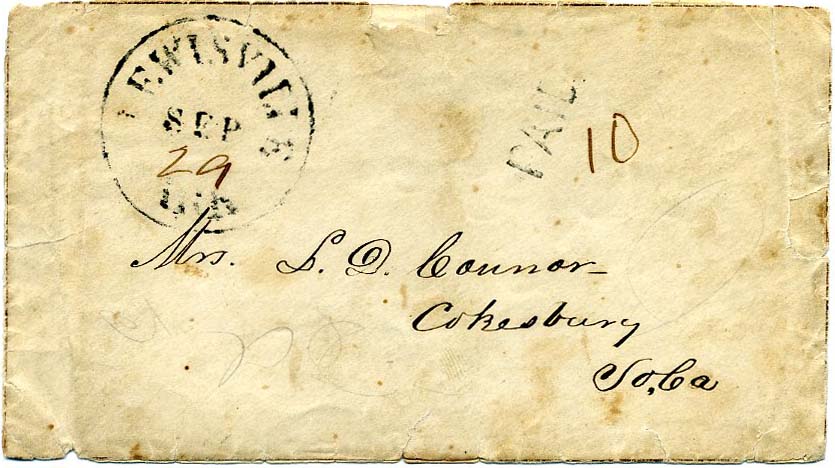 LEWISVILLE
SEP
29
PAID
10
Mrs. L. D. Connor
Cokesbury
So, Ca